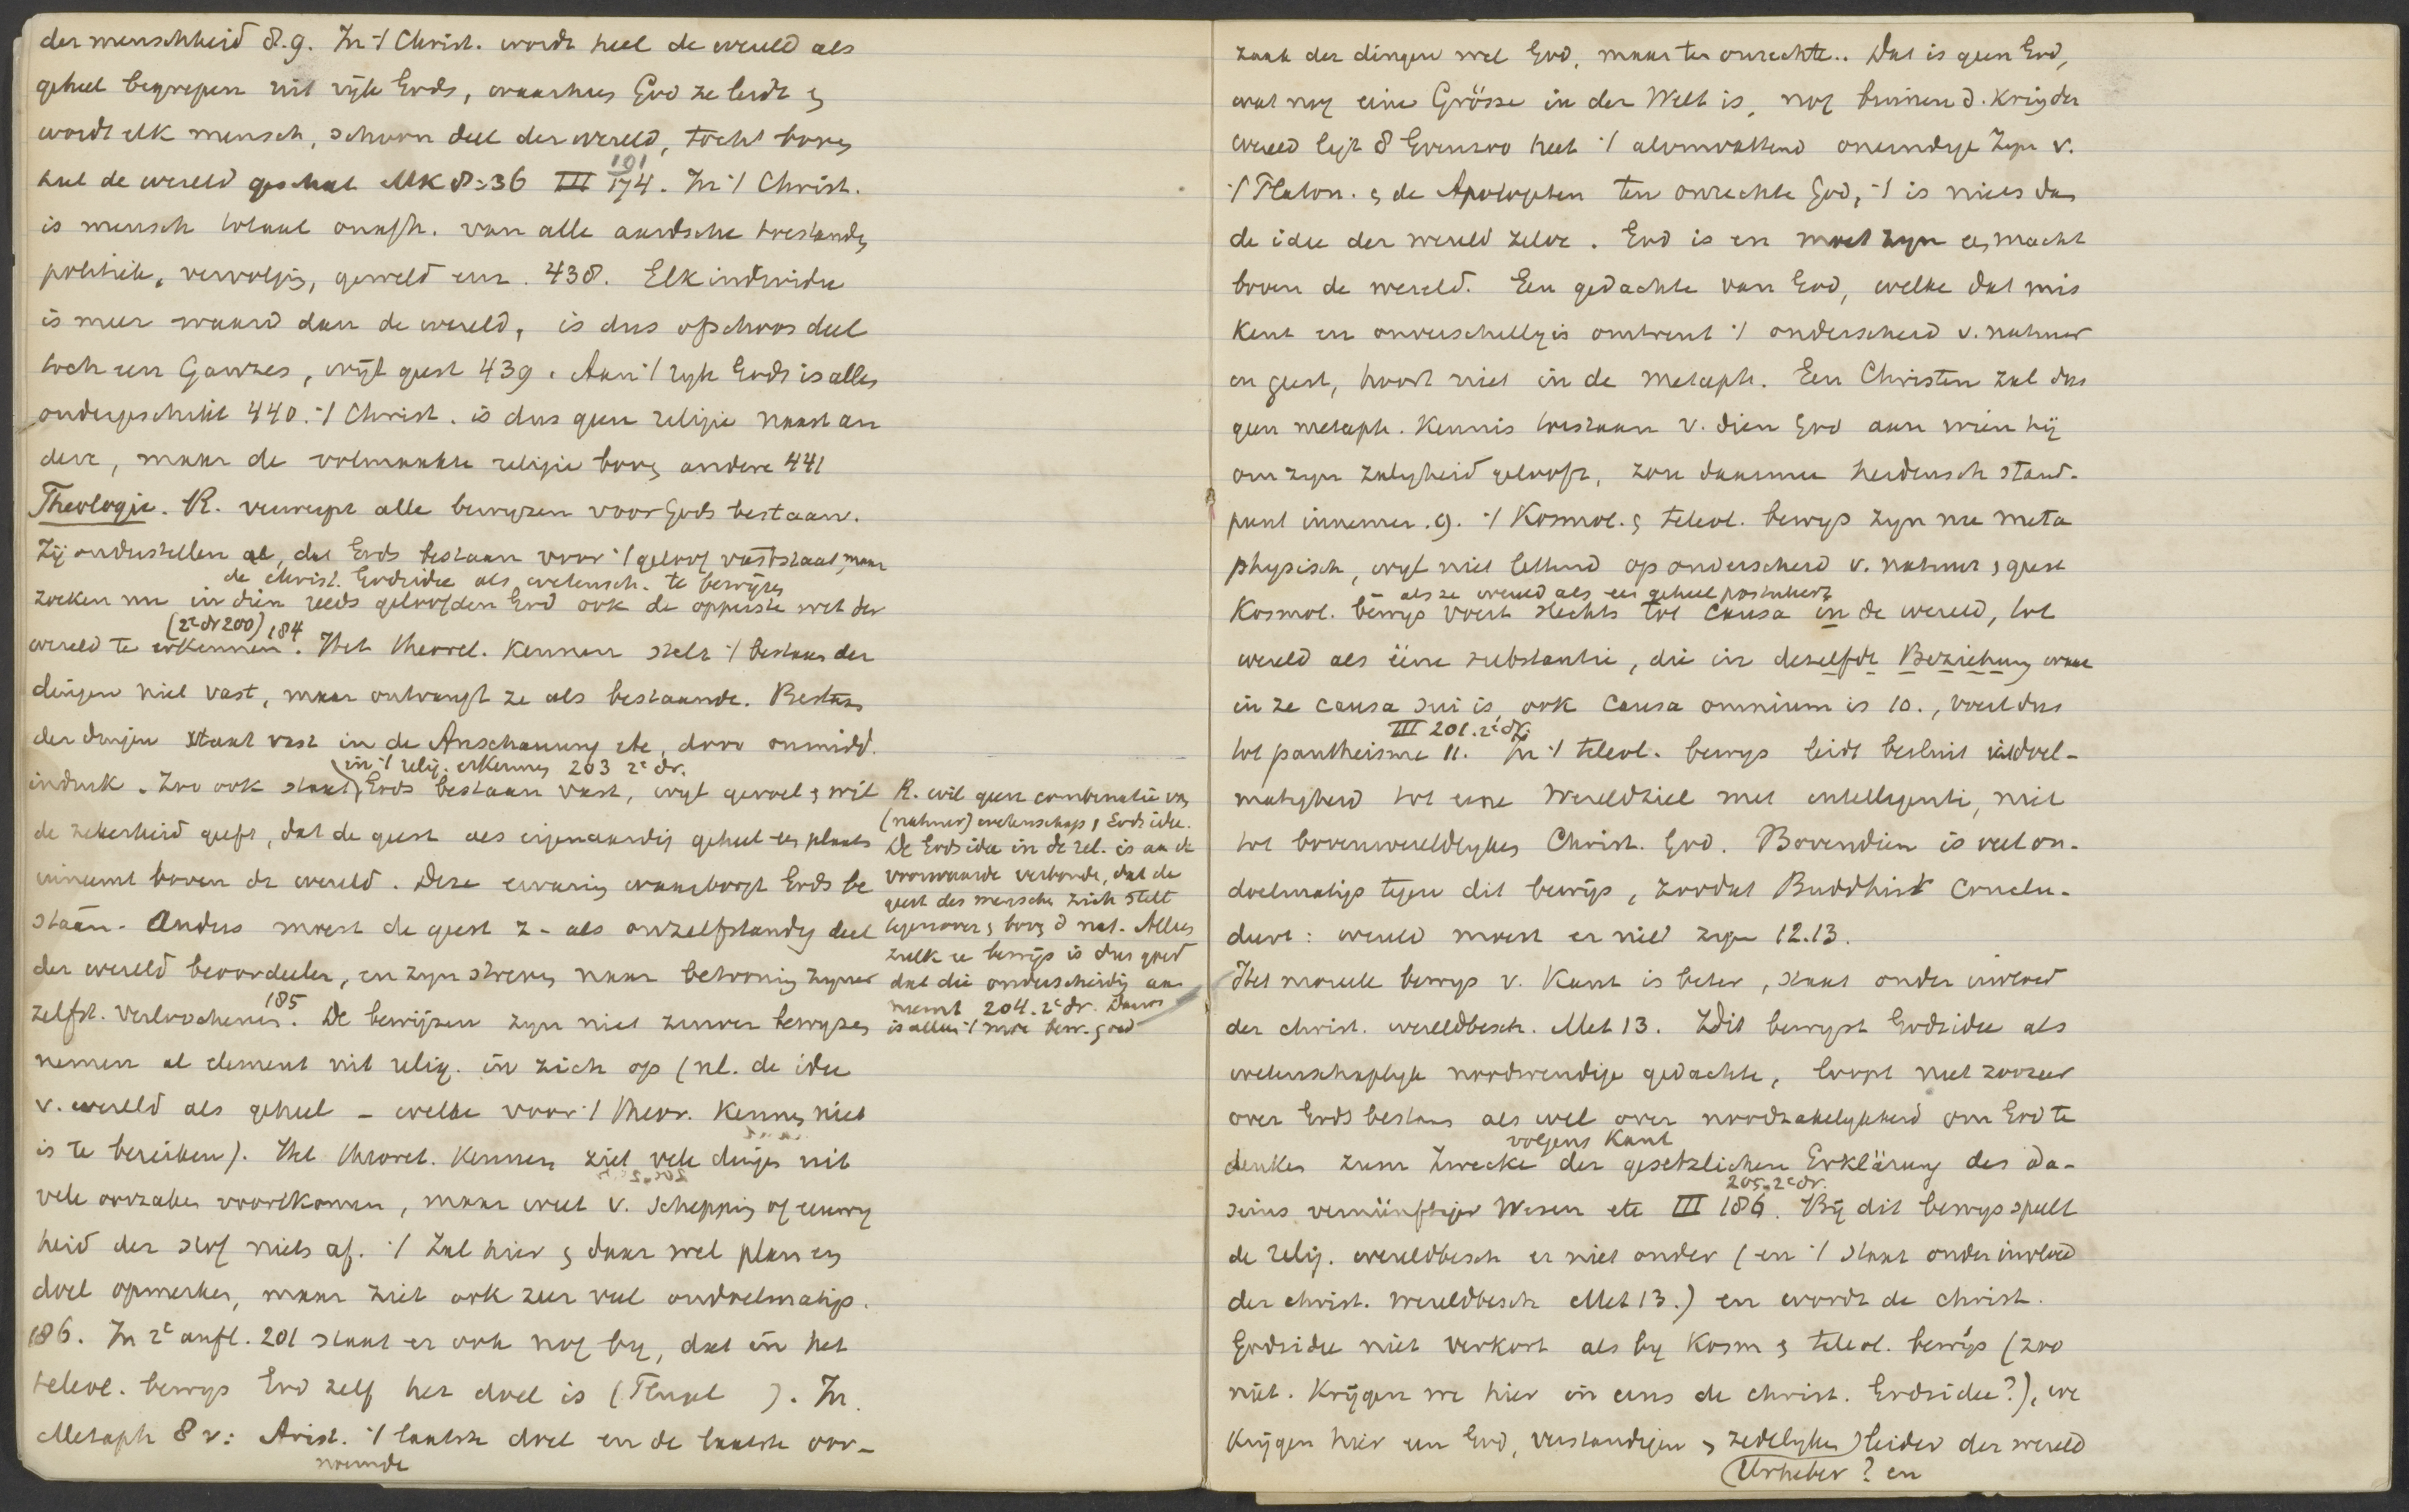 der menschheid 8.9. In ’t Christ. wordt heel de wereld als
geheel begrepen uit rijk Gods, waarheen God ze leidt en
wordt elk mensch, schoon deel der wereld, toch boven
heel de wereld geschat Mk 8:36 III 174. In ’t Christ.
191
is mensch totaal onafh. van alle aardsche toestanden
politiek, vervolging, geweld enz. 438. Elk individu
is meer waard dan de wereld, is dus ofschoon deel
toch een Ganzes, wijl geest 439. Aan ’t rijk Gods is alles
ondergeschikt 440. ’t Christ. is dus geen religie naast an
dere, maar de volmaakte religie boven andere 441
Theologie. R. verwerpt alle bewyzen voor Gods bestaan.
Zij onderstellen al, dat Gods bestaan voor ’t geloof vaststaat, maar
de christ. Godsidee als wetensch. te bewijzen
zoeken nu in dien reeds geloofden God ook de opperste wet der
(2e dr 200) 184
wereld te erkennen. Het theoret. kennen stelt ’t bestaan der
dingen niet vast, maar ontvangt ze als bestaande. Bestaan
der dingen staat vast in de Anschauung etc, door onmidd.
in ’t relig. erkennen 203 2e dr.
indruk. Zoo ook staat Gods bestaan vast, wijl gevoel en wil
de zekerheid geeft, dat de geest als eigenaardig geheel een plaats
inneemt boven de wereld. Deze ervaring waarborgt Gods be
staan. Anders moest de geest z. als onzelfstandig deel
der wereld beoordeelen, en zyn streven naar betooning zyner
zelfst. verloochenen. De bewijzen zyn niet zuiver bewyzen
185
nemen al element uit relig. in zich op (nl. de idee
v. wereld als geheel – welke voor ’t theor. kennen niet
is te bereiken). Het theoret. kennen ziet vele dingen uit
vele oorzaken voortkomen, maar weet v. schepping of eeuwig
heid der stof niets af. ’t Zal hier en daar wel plan en
doel opmerken, maar ziet ook zeer veel ondoelmatigs.
186. In 2e aufl. 201 staat er ook nog by, dat in het
teleol. bewys God zelf het doel is ( ). In
Metaph 8 v: Arist. ’t laatste doel en de laatste oor-
noemde
R. wil geen combinatie van
(natuur) wetenschap en Godsidee.
De Godsidee in de rel. is aan de
voorwaarde verbonden, dat de
geest des menschen zich stelt
tegenover en boven d nat. Alleen
zulk een bewijs is dus goed
dat die onderscheiding aan
neemt 204. 2e dr. Daarom
is alleen ’t more bew. goed
zaak der dingen wel God, maar ten onrechte.. Dat is geen God,
wat nog eine Grösse in der Welt is, nog binnen d. kring der
wereld ligt 8 Evenzoo heet ’t alomvattend oneindige Zyn v.
’t Platon. en de Apologeten ten onrechte God, ’t is niets dan
de idee der wereld zelve. God is en moet zyn een macht
boven de wereld. Een gedachte van God, welke dat mis
kent en onverschillig is omtrent ’t onderscheid v. natuur
en geest, hoort niet in de metaph. Een Christen zal dus
geen metaph. kennis toestaan v. dien God aan wien hij
om zyn zaligheid gelooft, zou daarmee heidensch stand-
punt innemen. 9. ’t Kosmol. en teleol. bewys zyn nu meta
physisch, wijl niet lettend op onderscheid v. natuur en geest
als ze wereld als een geheel postuleert
Kosmol. bewys voert slechts tot causa in de wereld, tot
wereld als ééne substantie, die in dezelfde Beziehung waar
in ze causa sui is, ook causa omnium is 10., voert dus
III 201. 2e dr.
tot pantheisme 11. In ’t teleol. bewys leidt besluit uit doel-
matigheid tot eene Wereldziel met intelligentie, niet
tot bovenwereldlyken Christ. God. Bovendien is veel on-
doelmatigs tegen dit bewijs, zoodat Buddhist conclu-
deert: wereld moest er niet zyn 12.13.
Het moreele bewys v. Kant is beter, staat onder invloed
der christ. wereldbesch. Met 13. Dit bewyst Godsidee als
wetenschaplyk noodwendige gedachte, loopt niet zoozeer
over Gods bestaan als wel over noodzakelykheid om God te
volgens Kant
denken zum Zwecke der gesetzlichen Erklärung des Da-
205. 2e dr.
seins vernünftiger Wesen etc III 186. Bij dit bewys speelt
de relig. wereldbesch er niet onder (en ’t staat onder invloed
der christ. wereldbesch Met 13.) en wordt de christ.
Godsidee niet verkort als by kosm en teleol. bewijs (zoo
niet. Krijgen we hier in eens de christ. Godsidee?), we
krijgen hier een God, verstandigen en zedelyken leider der wereld
(Urheber? en